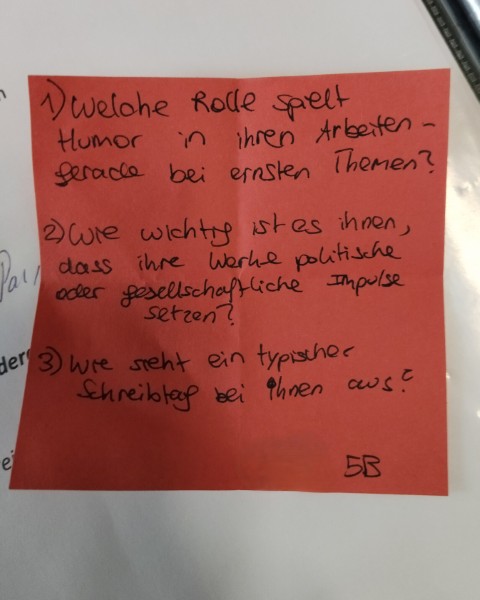 1) Welche Rolle spielt
Humor in ihren Arbeiten -
gerade bei ernsten Themen?
2) Wie wichtig ist es ihnen,
dass ihre Werke politische
oder gesellschaftliche Impulse
setzen?
3) Wie sieht ein typischer
Schreibtag bei Ihnen aus?
5B